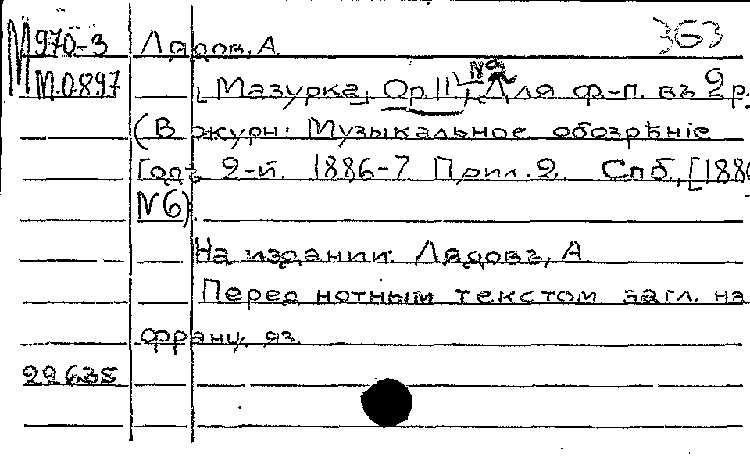 М 970-3 Лядов, А. 363
М.0897 [Мазурка, Op. 11.] Для ф-п. въ 2 р.
(В журн: Музыкальное обозрѣніе
Годъ 2-й. 1886-7 Прил. 2. Спб, [1886
N 6)
На издании: Лядовъ, А
Перед нотным текстом загл. на
франц. яз.